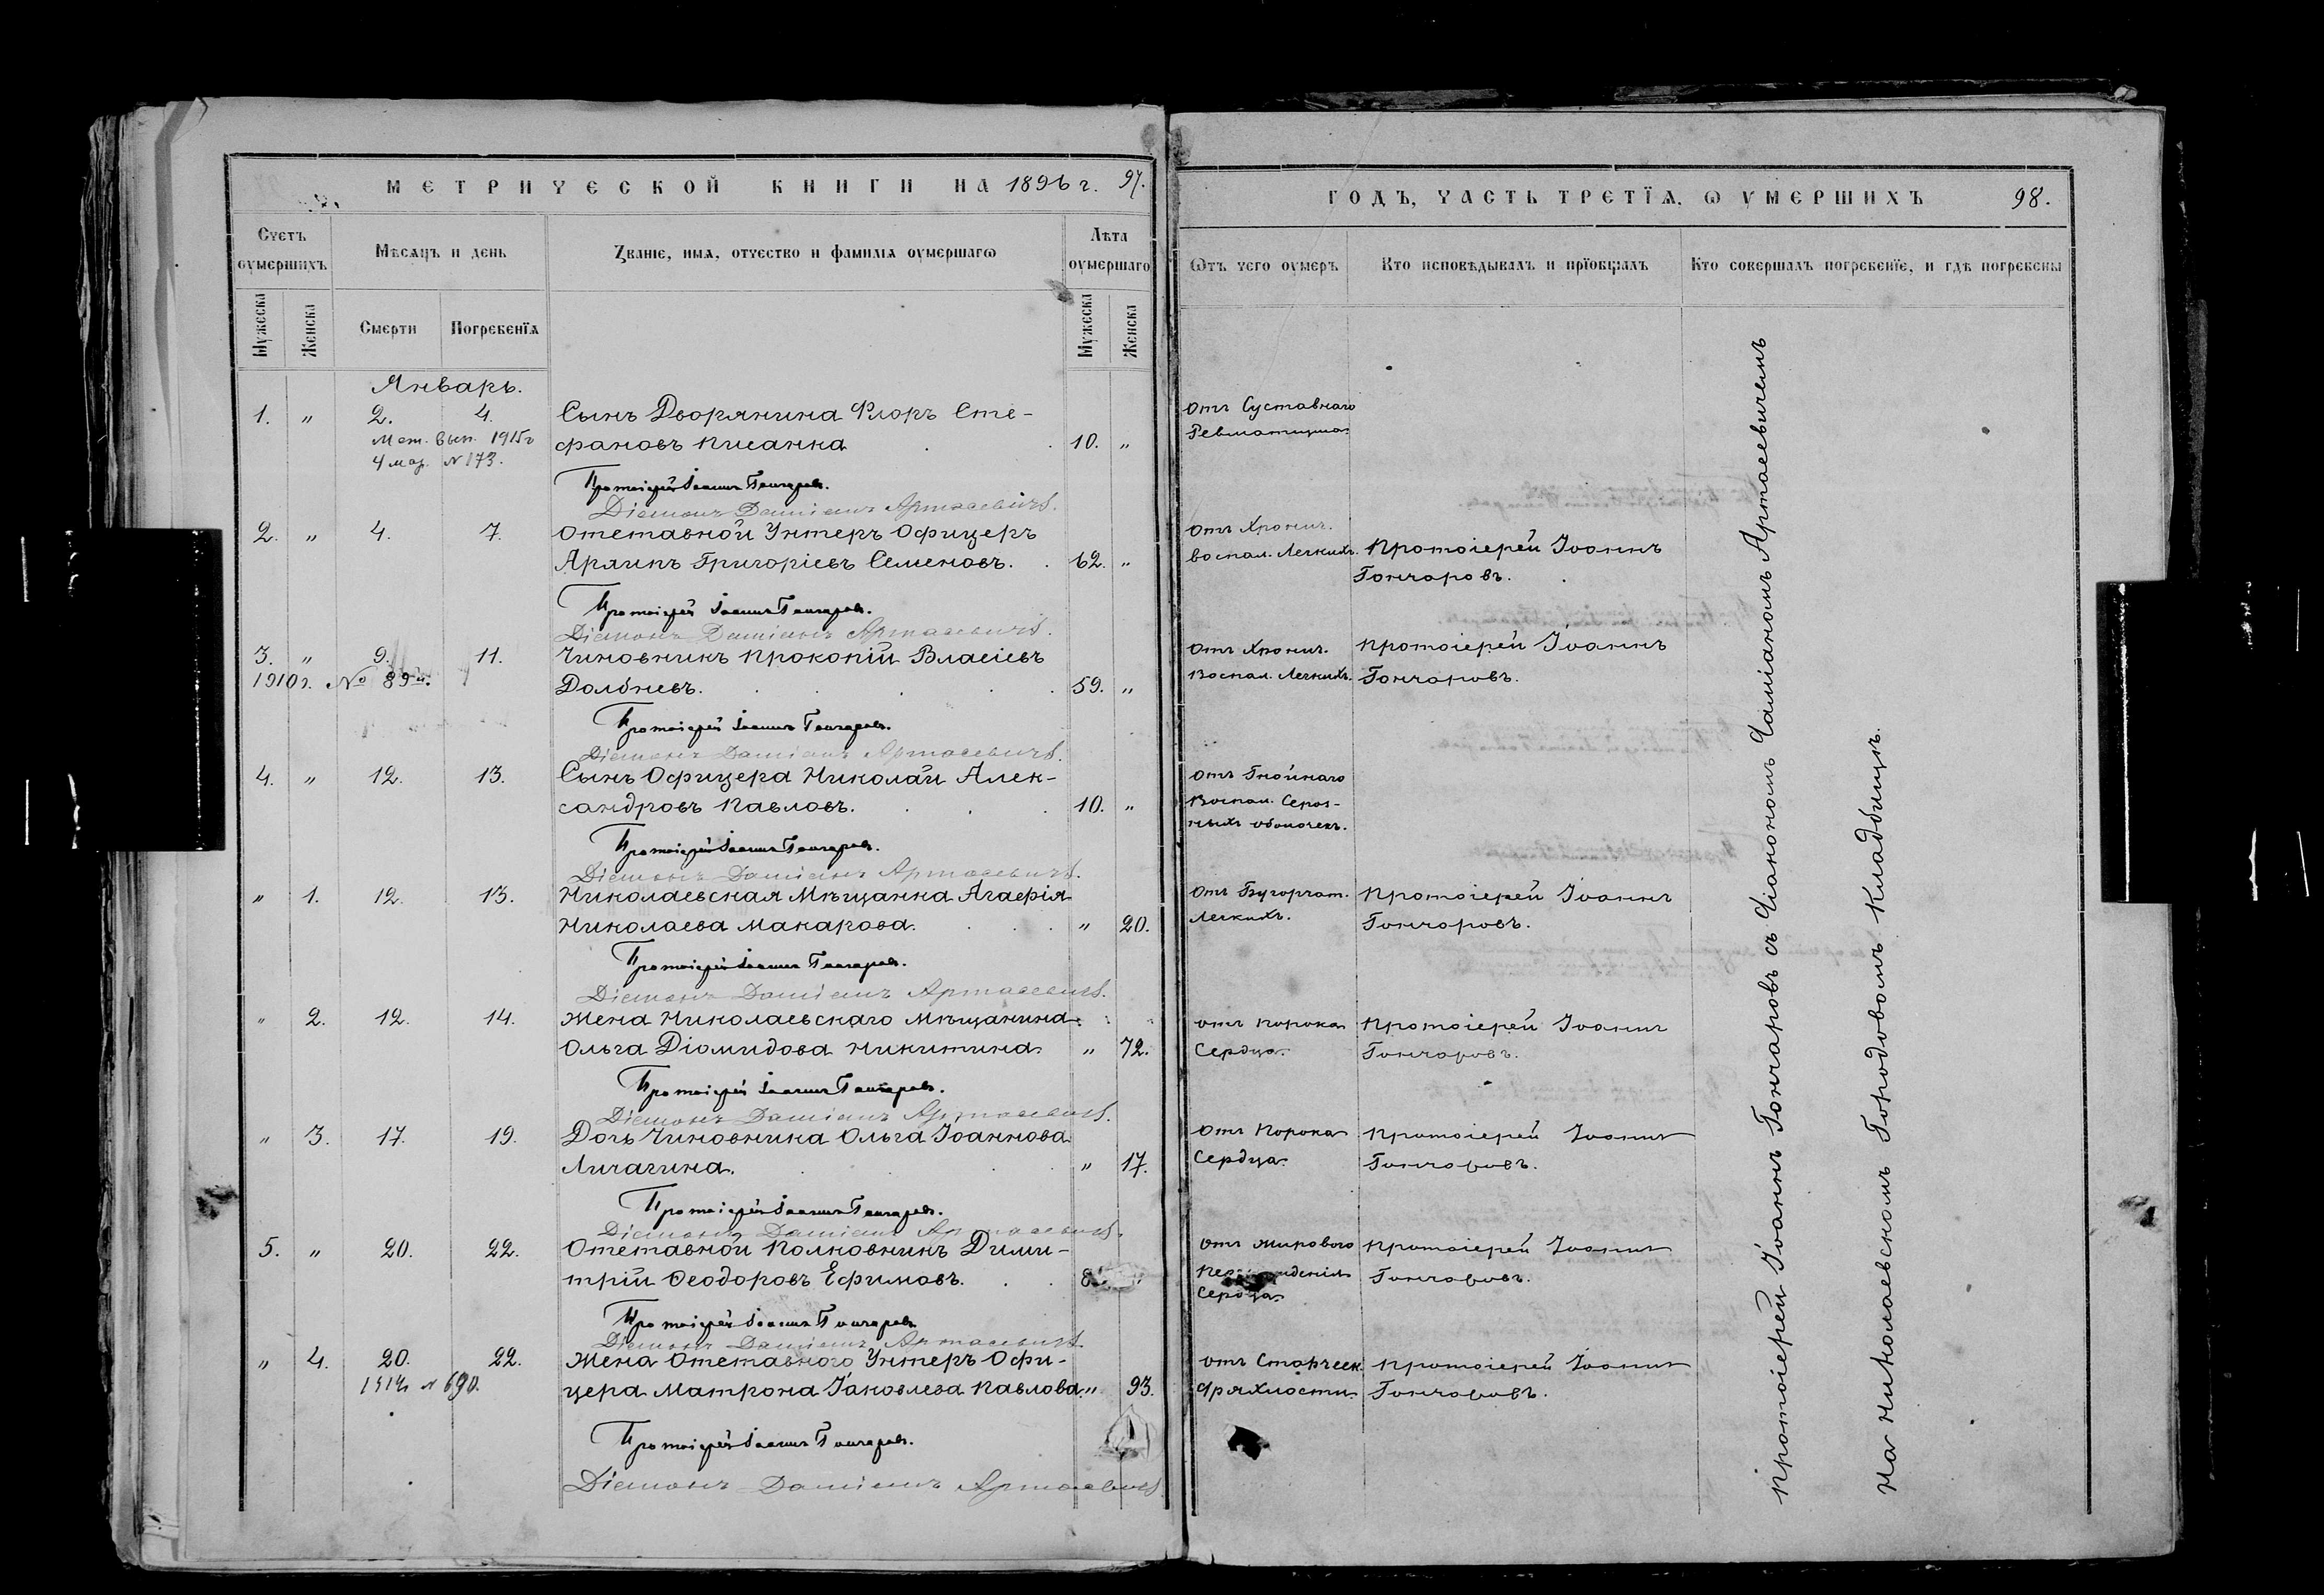 МЕТРИЧЕСКОЙ КНИГИ НА 1896 г. 97.
Счетъ оумершихъ
Мѣсяцъ и день
Званіе, имя, отчество и фамилія оумершагѡ
Лѣта оумершаго
Мужеска
Женска
Смерти
Погребенїя
Мужеска
Женска
Январь.
1. " 2. 4. Сынъ Дворянина Флоръ Сте-
Мет. вып. 1915 г
фановъ Писанка 10. "
4 мар. N 173.
Протоіерей Іоаннъ Гончаровъ.
Діаконъ Даміанъ Артасевичъ.
2. " 4. 7. Отставной Унтеръ Офицеръ
Григоріевъ Семеновъ. 62. "
Протоіерей Іоаннъ Гончаровъ.
Діаконъ Даміанъ Артасевичъ.
3. " 9. 11. Чиновникъ Прокопій Власіевъ
1910 г. № 89
59. "
Протоіерей Іоаннъ Гончаровъ.
Діаконъ Даміанъ Артасевичъ.
4. " 12. 13. Сынъ Офицера Николай Алек-
сандровъ Павловъ. 10. "
Протоіерей Іоаннъ Гончаровъ.
Діаконъ Даміанъ Артасевичъ.
" 1. 12. 13. Николаевская Мѣщанка Агафія
Николаева Макарова. " 20.
Протоіерей Іоаннъ Гончаровъ.
Діаконъ Даміанъ Артасевичъ.
" 2. 12. 14. Жена Николаевскаго Мѣщанина
Ольга Діомидова Никитина. " 72.
Протоіерей Іоаннъ Гончаровъ.
Діаконъ Даміанъ Артасевичъ.
" 3. 17. 19. Дочь Чиновника Ольга Іоаннова
Личагина. " 17.
Протоіерей Іоаннъ Гончаровъ.
Діаконъ Даміанъ Артасевичъ.
5. " 20. 22. Отставной Полковникъ Дими-
трій Ѳеодоровъ Ефимовъ.
Протоіерей Іоаннъ Гончаровъ
Діаконъ Даміанъ Артасевичъ.
" 4. 20. 22. Жена Отставного Унтеръ Офи-
N 690.
цера Матрона Іаковлева Павлова " 93.
Протоіерей Іоаннъ Гончаровъ.
Діаконъ Даміанъ Артасевичъ
ГОДЪ, ЧАСТЬ ТРЕТЇЯ, Ѡ УМЕРШИХЪ 98.
Ѿтъ чего оумеръ
Кто исповѣдывалъ и прїобщалъ
Кто совершалъ погребенїе, и гдѣ погребены
Отъ Суставнаго
Ревматизма.
Отъ Хронич.
воспал. Легкихъ. Протоіерей Іоаннъ
Гончаровъ.
Отъ Хронич. Протоіерей Іоаннъ
Воспал. Легкихъ. Гончаровъ.
Отъ Гнойнаго
Воспал. Сероз-
ныхъ оболочекъ.
Отъ Бугорчат. Протоіерей Іоаннъ
Легкихъ. Гончаровъ.
Отъ Порока Протоіерей Іоаннъ
Сердца. Гончаровъ.
Отъ Порока Протоіерей Іоаннъ
Сердца. Гончаровъ.
Отъ Жирового Протоіерей Іоаннъ
Гончаровъ.
Сердца.
Отъ Старческ. Протоіерей Іоаннъ
Дряхлости. Гончаровъ.
Протоіерей Іоаннъ Гончаровъ съ Діакономъ Даміаномъ Артасевичемъ
На Николаевскомъ Городовомъ Кладбищѣ.